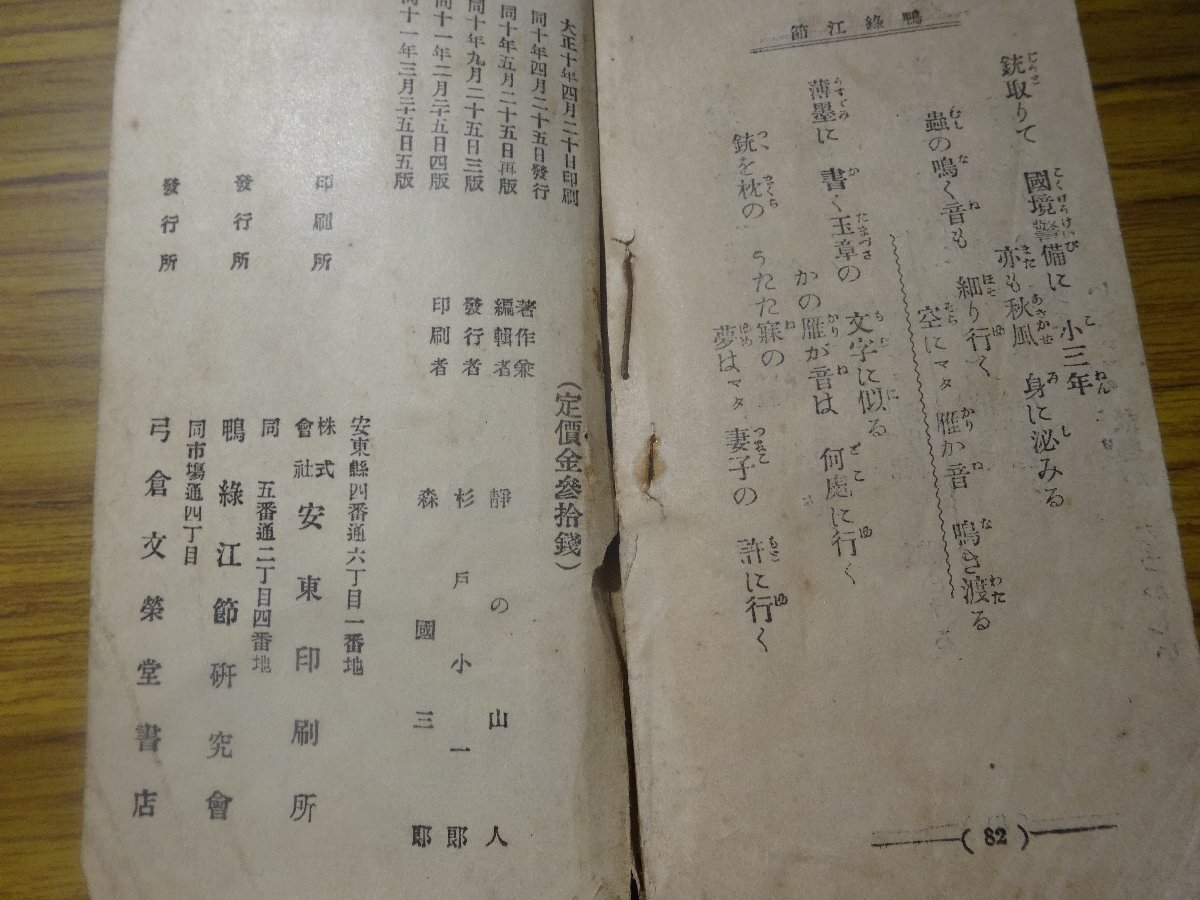 鴨緑江節
銃取りて 國境警備に 小三年
亦も秋風 身に泌みる
蟲の鳴く音も 細り行く
空にマタ 雁か音 鳴き渡る
薄墨に 書く玉章の 文字に似る
かの雁が音は 何處に行く
銃を枕の うたた寐の
夢はマタ 妻子の 許に行く
(82)
大正十年四月二十日印刷
同十年四月二十五日發行
同十年五月二十五日再版
同十年九月二十五日三版
同十一年二月二十五日四版
同十一年三月二十五日五版
(定價金參拾錢)
著作兼編輯者 靜の山人
發行者 杉戸小一郎
印刷者 森國三郎
安東縣四番通六丁目一番地
印刷所 株式會社 安東印刷所
同 五番通二丁目四番地
發行所 鴨綠江節研究會
同市場通四丁目
發行所 弓倉文榮堂書店